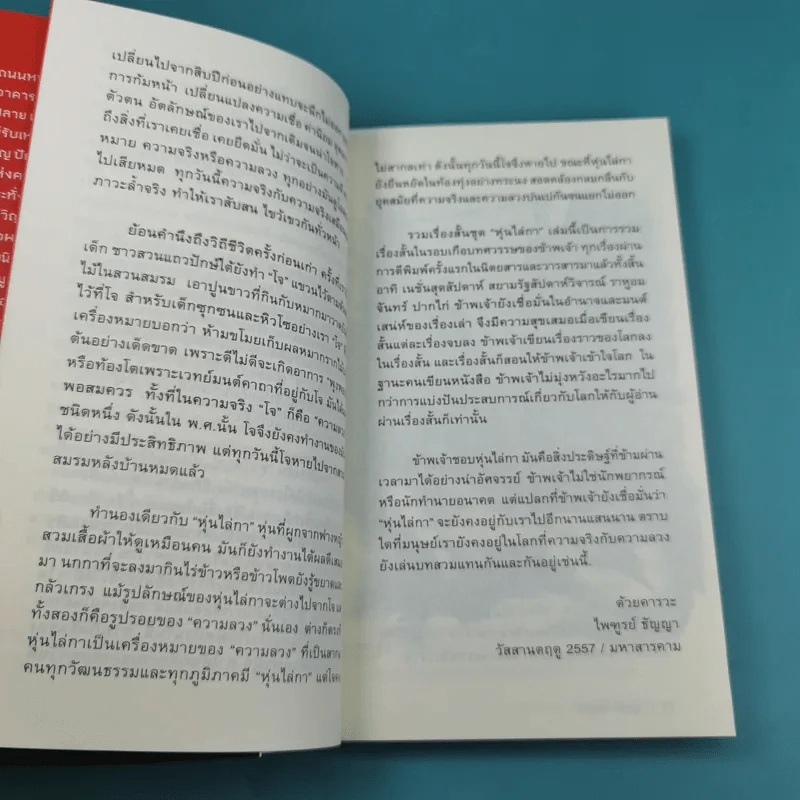 ถนนห
อาคาร
เปลี่ยนไปจากสิบปีก่อนอย่างแทบจะนึกไม่
การก้มหน้า เปลี่ยนแปลงความเชื่อ ค่านิยม
ตัวตน อัตลักษณ์ของเราไปจากเดิมจนน่าใจ
ถึงสิ่งที่เราเคยเชื่อ เคยยึดมั่น ไม่ว่าจะเป็นความ
หมาย ความจริงหรือความลวง ทุกอย่างมันดู
ไปเสียหมด ทุกวันนี้ความจริงกับความจริงเสมือน
ภาวะล้ำจริง ทำให้เราสับสน ไขว้เขวกันทั่วหน้า
ย้อนคำนึงถึงวิถีชีวิตครั้งก่อนเก่า ครั้งที่
เด็ก ชาวสวนแถวปักษ์ใต้ยังทำ “โจ” แขวนไว้ตาม
ไม้ในสวนสมรม เอาปูนขาวที่กินกับหมากมา
ไว้ที่โจ สำหรับเด็กซุกซนและหิวโซอย่างเรา “โจ”
เครื่องหมายบอกว่า ห้ามขโมยเก็บผลหมากรากไม้
ต้นอย่างเด็ดขาด เพราะดีไม่ดีจะเกิดอาการ
หรือท้องโตเพราะเวทย์มนต์คาถาที่อยู่กับโจ มัน
พอสมควร ทั้งที่ในความจริง “โจ” ก็คือ “ความลวง”
ชนิดหนึ่ง ดังนั้นใน พ.ศ.นั้น โจจึงยังคงทำงานของ
ได้อย่างมีประสิทธิภาพ แต่ทุกวันนี้โจหายไปจาก
สมรมหลังบ้านหมดแล้ว
ทำนองเดียวกับ “หุ่นไล่กา” หุ่นที่ผูกจากฟาง
สวมเสื้อผ้าให้ดูเหมือนคน มันก็ยังทำงานได้ผลดี
มา นกกาที่จะลงมากินไร่ข้าวหรือข้าวโพดยังรู้ขยาด
กลัวเกรง แม้รูปลักษณ์ของหุ่นไล่กาจะต่างไปจากโจ
ทั้งสองก็คือรูปรอยของ “ความลวง” นั่นเอง ต่างก็ตรง
หุ่นไล่กาเป็นเครื่องหมายของ “ความลวง” ที่เป็นสากล
คนทุกวัฒนธรรมและทุกภูมิภาคมี “หุ่นไล่กา” แต่โจ
ไม่สากลเท่า ดังนั้นทุกวันนี้โจจึงหายไป ขณะที่หุ่นไล่กา
ยังยืนหยัดในท้องทุ่งอย่างทระนง สอดคล้องกลมกลืนกับ
ยุคสมัยที่ความจริงและความลวงปนเปกันซนแยกไม่ออก
รวมเรื่องสั้นชุด “หุ่นไล่กา” เล่มนี้เป็นการรวม
เรื่องสั้นในรอบเกือบทศวรรษของข้าพเจ้า ทุกเรื่องผ่าน
การตีพิมพ์ครั้งแรกในนิตยสารและวารสารมาแล้วทั้งสิ้น
อาทิ เนชั่นสุดสัปดาห์ สยามรัฐสัปดาห์วิจารณ์ ราหูอม
จันทร์ ปากไก่ ข้าพเจ้ายังเชื่อมั่นในอำนาจและมนต์
เสน่ห์ของเรื่องเล่า จึงมีความสุขเสมอเมื่อเขียนเรื่อง
สั้นแต่ละเรื่องจบลง ข้าพเจ้าเขียนเรื่องราวของโลกลง
ในเรื่องสั้น และเรื่องสั้นก็สอนให้ข้าพเจ้าเข้าใจโลก ใน
ฐานะคนเขียนหนังสือ ข้าพเจ้าไม่มุ่งหวังอะไรมากไป
กว่าการแบ่งปันประสบการณ์เกี่ยวกับโลกให้กับผู้อ่าน
ผ่านเรื่องสั้นก็เท่านั้น
ข้าพเจ้าชอบหุ่นไล่กา มันคือสิ่งประดิษฐ์ที่ข้ามผ่าน
เวลามาได้อย่างน่าอัศจรรย์ ข้าพเจ้าไม่ใช่นักพยากรณ์
หรือนักทำนายอนาคต แต่แปลกที่ข้าพเจ้ายังเชื่อมั่นว่า
“หุ่นไล่กา” จะยังคงอยู่กับเราไปอีกนานแสนนาน ตราบ
ใดที่มนุษย์เรายังคงอยู่ในโลกที่ความจริงกับความลวง
ยังเล่นบทสวมแทนกันและกันอยู่เช่นนี้.
ด้วยคารวะ
ไพฑูรย์ ธัญญา
วัสสานตฤดู 2557 / มหาสารคาม